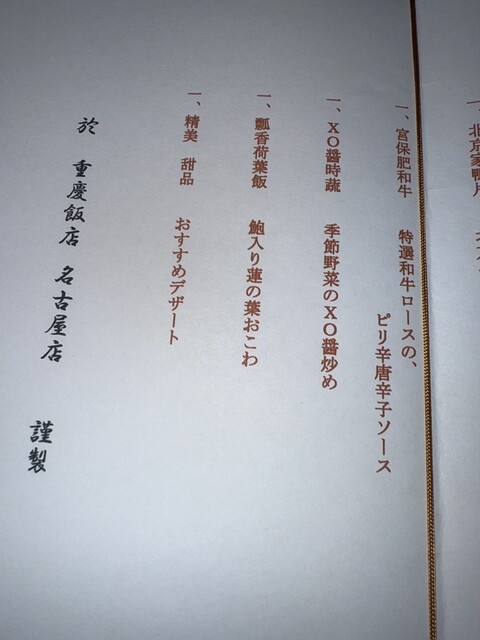 一、北京家鴨片
一、宮保肥和牛　特選和牛ロースの、
ピリ辛唐辛子ソース
一、XO醤時蔬　季節野菜のXO醤炒め
一、瓢香荷葉飯　鮑入り蓮の葉おこわ
一、精美　甜品　おすすめデザート
於　重慶飯店　名古屋店　謹製